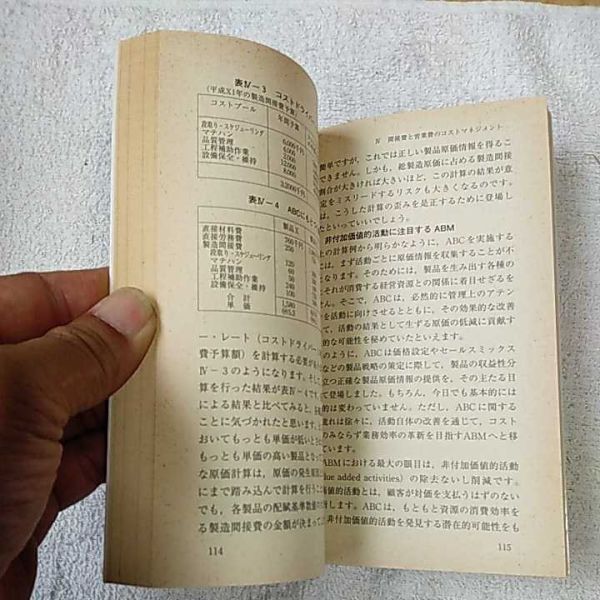 表Ⅳ－3 コストドライバー
(平成X1年の製造間接費予算)
コストプール 年間予算
段取り・スケジューリング 6,000千円
マテハン 4,000
品質管理 2,000
工程補助作業 12,000
設備保全・維持 8,000
表Ⅳ－4 ABCにもとづ
製品X
直接材料費
直接労務費
製造間接費
段取り・スケジューリング
マテハン
品質管理
工程補助作業
設備保全・維持
合計 1,580
単価
ー・レート（コストドライバー
費予算額）を計算する必要が
Ⅳ－3のようになります。そし
算を行った結果が表Ⅳ－4です
による結果と比べてみると、
ことに気づかれたと思います。
おいてもっとも単価が低いとさ
もっとも単価の高い製品となっ
な原価計算は、原価の発生原因
にまで踏み込んで計算を行うこ
でも、各製品の配賦基準数値の
る製造間接費の金額が決まって
114
Ⅳ 間接費と営業費のコストマネジメント
簡単ですが、これでは正しい製品原価情報を得るこ
できません。しかも、総製造原価に占める製造間接
割合が大きければ大きいほど、この計算の結果が意
定をミスリードするリスクも大きくなるのです。
は、こうした計算の歪みを是正するために登場し
といっていいでしょう。
非付加価値的活動に注目する ABM
上の計算例から明らかなように、ABCを実施する
は、まず活動ごとに原価情報を収集することが不
なります。そのためには、製品を生み出す各種の
それが消費する経営資源との関係に着目せざるを
せん。そこで、ABCは、必然的に管理上のアテン
に向けさせるとともに、その効果的な改善
て、活動の結果として生ずる原価の低減に貢献す
的な可能性を秘めていたといえます。
のように、ABCは価格設定やセールスミックス
などの製品戦略の策定に際して、製品の収益性分
立つ正確な製品原価情報の提供を、その主たる目
て登場しました。もちろん、今日でも基本的には
的は変わっていません。ただし、ABCに関する
れは徐々に、活動自体の改善を通じて、コスト
のみならず業務効率の革新を目指すABMへと移
ています。
ABMにおける最大の眼目は、非付加価値的活動
lue added activities）の除去ないし削減です。
値的活動とは、顧客が対価を支払うはずのない
指します。ABCは、もともと資源の消費効率を
非付加価値的活動を発見する潜在的可能性をも
115